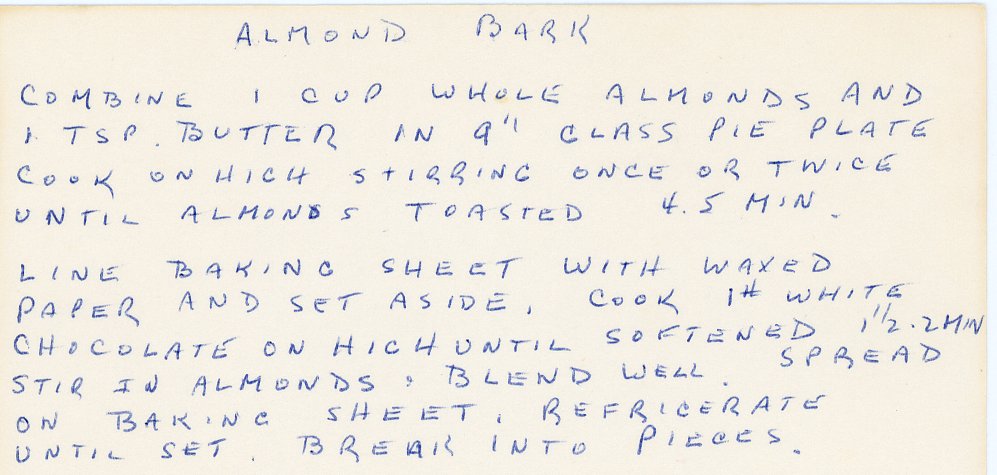 ALMOND BARK
COMBINE 1 CUP WHOLE ALMONDS AND
1 TSP. BUTTER IN 9" GLASS PIE PLATE
COOK ON HIGH STIRRING ONCE OR TWICE
UNTIL ALMONDS TOASTED 4.5 MIN.
LINE BAKING SHEET WITH WAXED
PAPER AND SET ASIDE. COOK 1# WHITE
CHOCOLATE ON HIGH UNTIL SOFTENED 1 1/2.2 MIN
STIR IN ALMONDS. BLEND WELL. SPREAD
ON BAKING SHEET. REFRIGERATE
UNTIL SET. BREAK INTO PIECES.